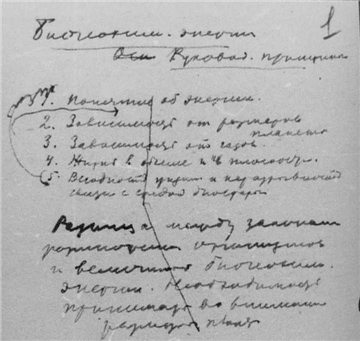 1
Биогеохим. энергия
Руковод. принципы
1. Понятие об энергии.
2. Зависимость от размеров
планеты
3. Зависимость от
4. Жизнь в объеме и в плоскости.
5. Всюдность жизни и
связи с средой биосферы
Разница между законами
размножения организмов
и величиной биогеохим.
энергии. Необходимость
принимать во внимание
размеры